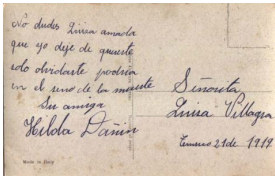 No dudes Luisa amada
que yo deje de quererte
solo olvidarte podria
en el seno de la muerte
Su amiga
Hilda Dañin
Señorita
Luisa Villagra
Enero 21 de 1919
Made in Italy